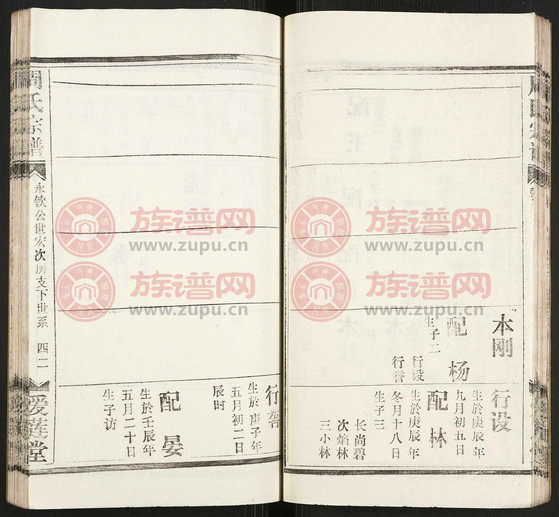 本刚
配杨
生子二
行设
行誉
行设
生於庚辰年
九月初五日
配林
生於庚辰年
冬月十八日
生子三
长尚碧
次焰林
三小林
行誉
生於庚子年
五月初二日
辰时
配晏
生於壬辰年
五月二十日
生子访
周氏宗譜
永欽公世宏次房支下世系
四二
爱莲堂
族谱网
www.zupu.cn
族谱网
www.zupu.cn
族谱网
www.zupu.cn
族谱网
www.zupu.cn